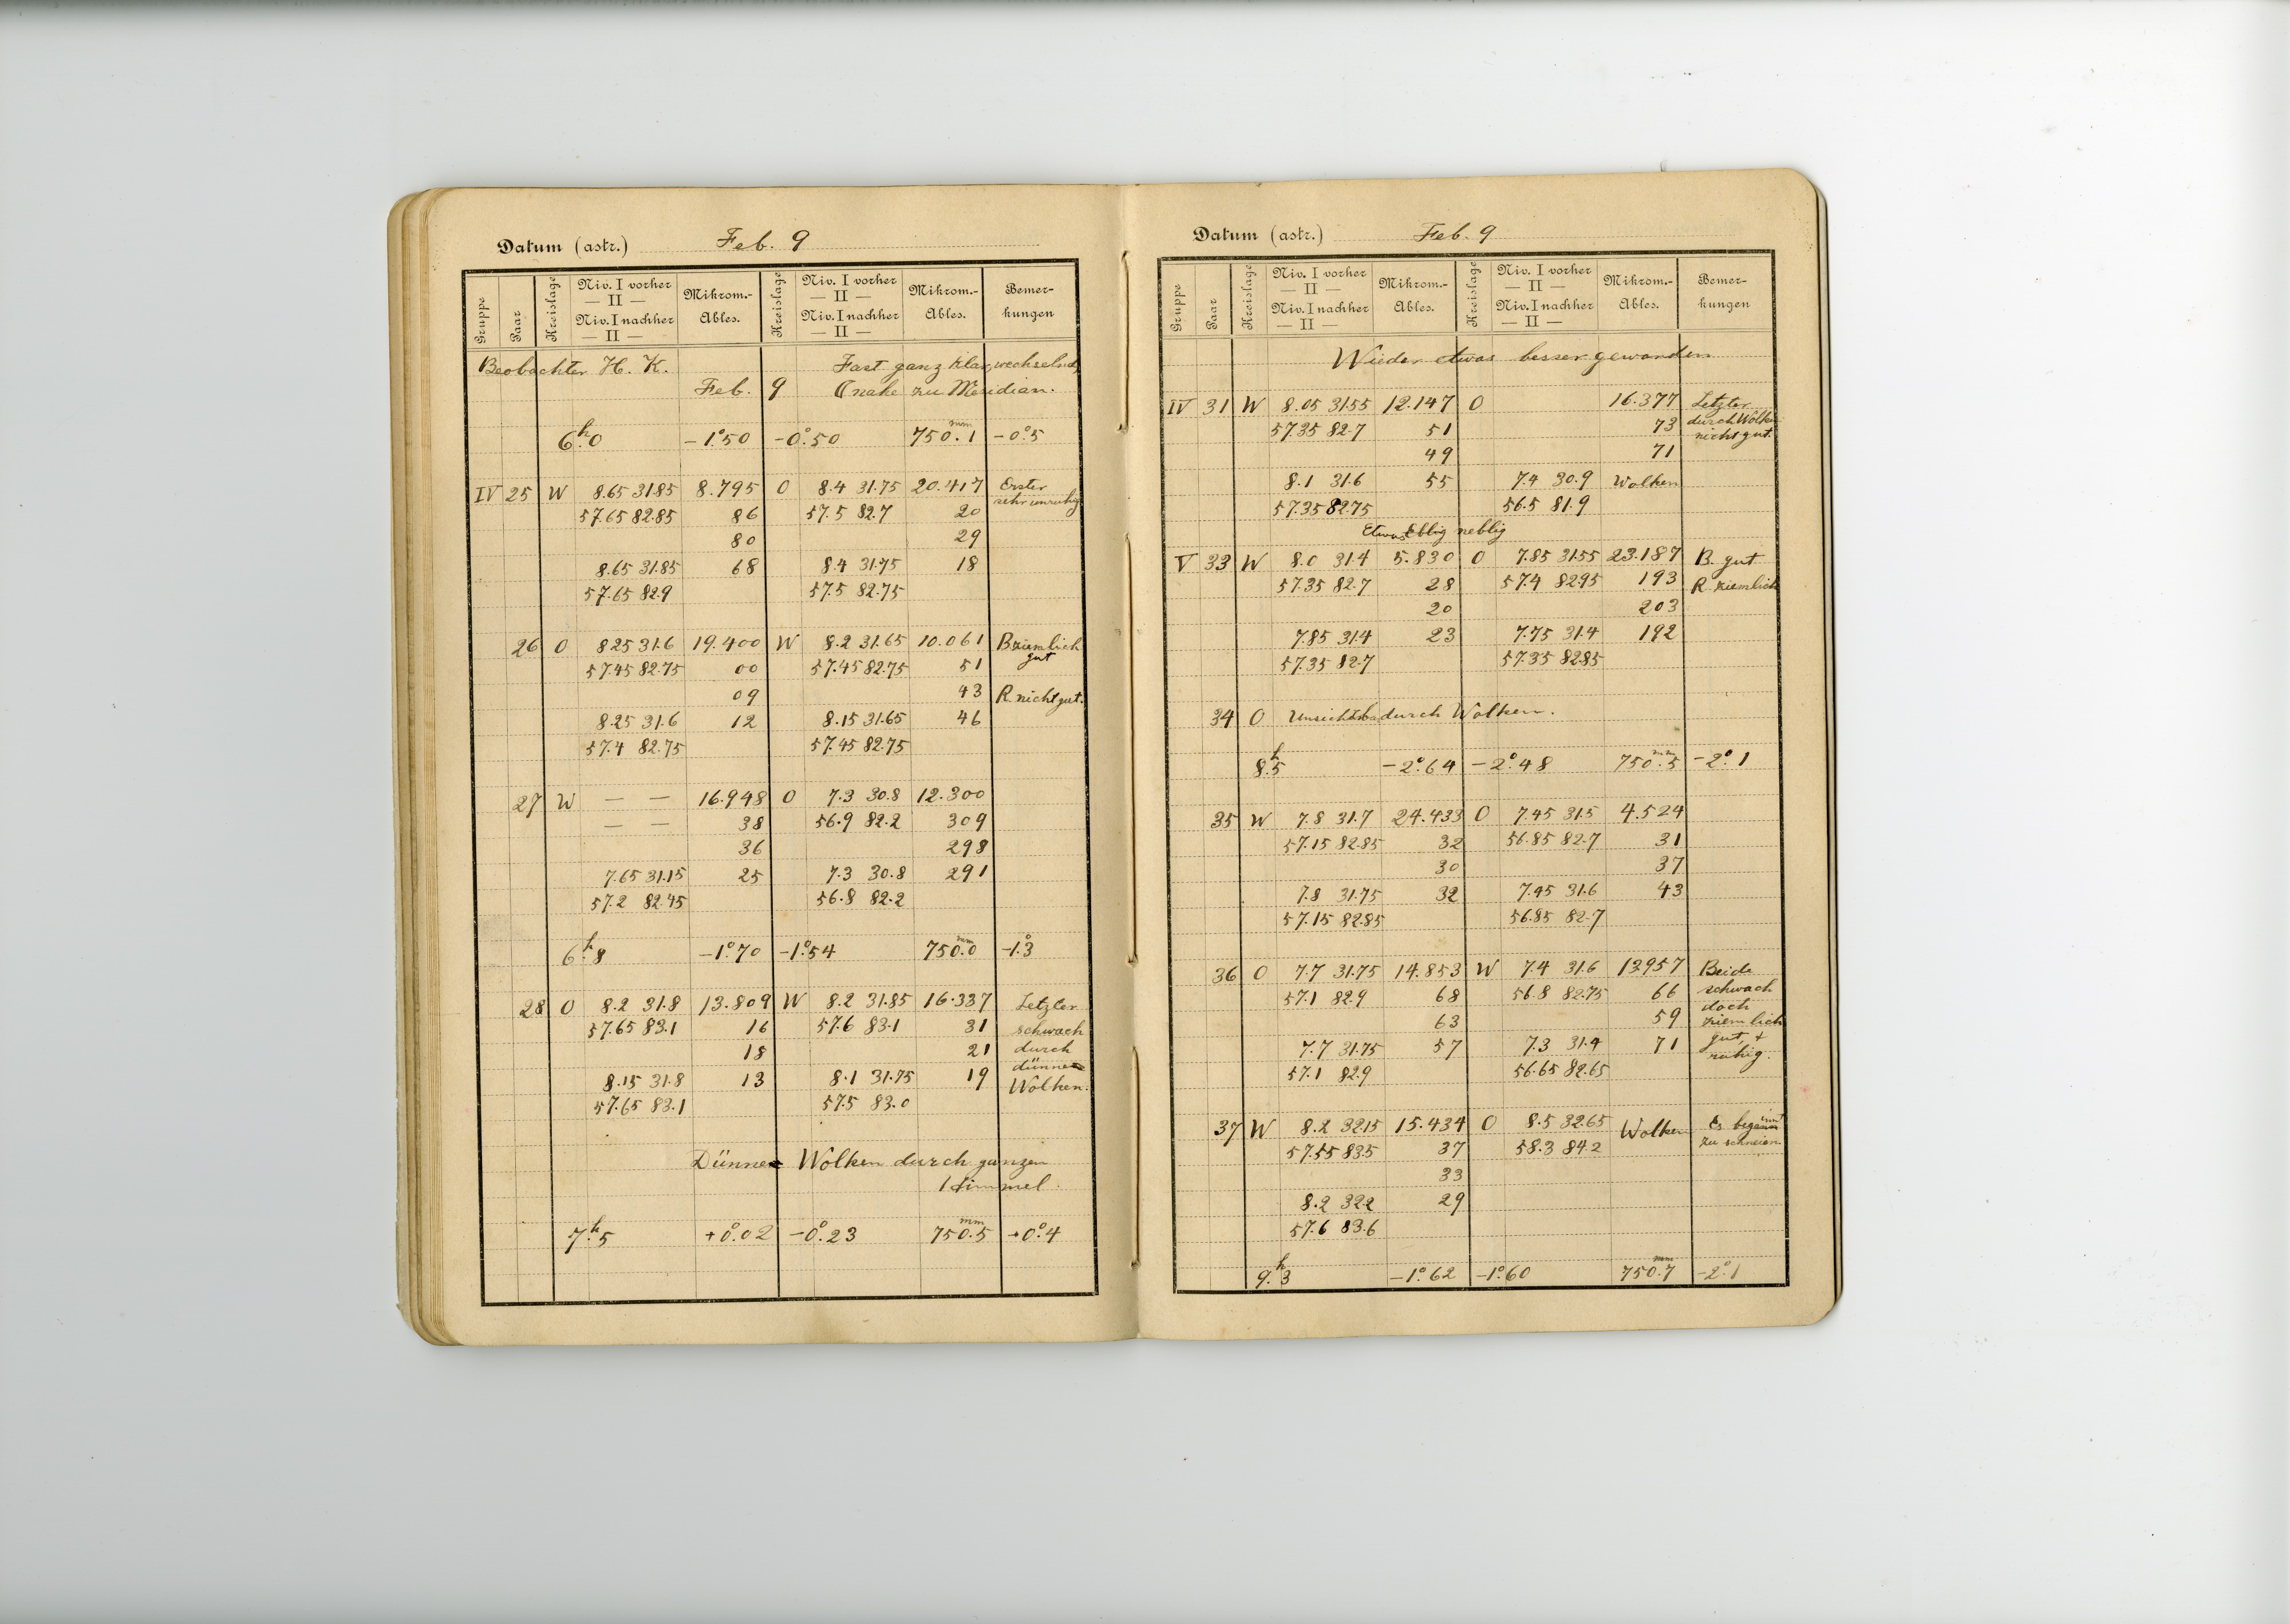 Datum (astr.) Feb. 9
Gruppe Paar Kreislage Niv. I vorher — II — Niv. I nachher — II — Mikrom.-Ables. Kreislage Niv. I vorher — II — Niv. I nachher — II — Mikrom.-Ables. Bemer-kungen
Beobachter H. K. Fast ganz klar, wechselnd,
Feb. 9 ☾ nahe zu Meridian.
6ʰ.0 −1°.50 −0°.50 750.1 mm −0°.5
IV 25 W 8.65 31.85 8.795 O 8.4 31.75 20.417 Erster
57.65 82.85 86 57.5 82.7 20 sehr unruhig
80 29
8.65 31.85 68 8.4 31.75 18
57.65 82.9 57.5 82.75
26 O 8.25 31.6 19.400 W 8.2 31.65 10.061 B ziemlich
57.45 82.75 00 57.45 82.75 51 gut
09 43 R. nicht gut.
8.25 31.6 12 8.15 31.65 46
57.4 82.75 57.45 82.75
27 W — — 16.948 O 7.3 30.8 12.300
— — 38 56.9 82.2 309
36 298
7.65 31.15 25 7.3 30.8 291
57.2 82.45 56.8 82.2
6ʰ.8 −1°.70 −1°.54 750.0 mm −1°.3
28 O 8.2 31.8 13.809 W 8.2 31.85 16.337 Letzter
57.65 83.1 16 57.6 83.1 31 schwach
18 21 durch
dünne
8.15 31.8 13 8.1 31.75 19 Wolken.
57.65 83.1 57.5 83.0
Dünne Wolken durch ganzen
Himmel.
7ʰ.5 +0°.02 −0°.23 750.5 mm +0°.4
Datum (astr.) Feb. 9
Gruppe Paar Kreislage Niv. I vorher — II — Niv. I nachher — II — Mikrom.-Ables. Kreislage Niv. I vorher — II — Niv. I nachher — II — Mikrom.-Ables. Bemer-kungen
Wieder etwas besser geworden
IV 31 W 8.05 31.55 12.147 O 16.377 Letzter
57.35 82.7 51 73 durch Wolken
49 71 nicht gut.
8.1 31.6 55 7.4 30.9 Wolken
57.35 82.75 56.5 81.9
Etwas neblig
V 33 W 8.0 31.4 5.830 O 7.85 31.55 23.187 B. gut
57.35 82.7 28 57.4 82.95 193 R. ziemlich
20 203
7.85 31.4 23 7.75 31.4 192
57.35 82.7 57.35 82.85
34 O Unsichtba durch Wolken.
8ʰ.5 −2°.64 −2°.48 750.5 mm −2°.1
35 W 7.8 31.7 24.433 O 7.45 31.5 4.524
57.15 82.85 32 56.85 82.7 31
30 37
7.8 31.75 32 7.45 31.6 43
57.15 82.85 56.85 82.7
36 O 7.7 31.75 14.853 W 7.4 31.6 13.957 Beide
57.1 82.9 68 56.8 82.75 66 schwach
doch
63 59 ziemlich
7.7 31.75 57 7.3 31.4 71 gut, +
57.1 82.9 56.65 82.65 ruhig.
37 W 8.2 32.15 15.434 O 8.5 32.65 Wolken Es beginnt
57.55 83.5 37 58.3 84.2 zu schneien
33
8.2 32.2 29
57.6 83.6
9ʰ.3 −1°.62 −1°.60 750.7 mm −2°.1